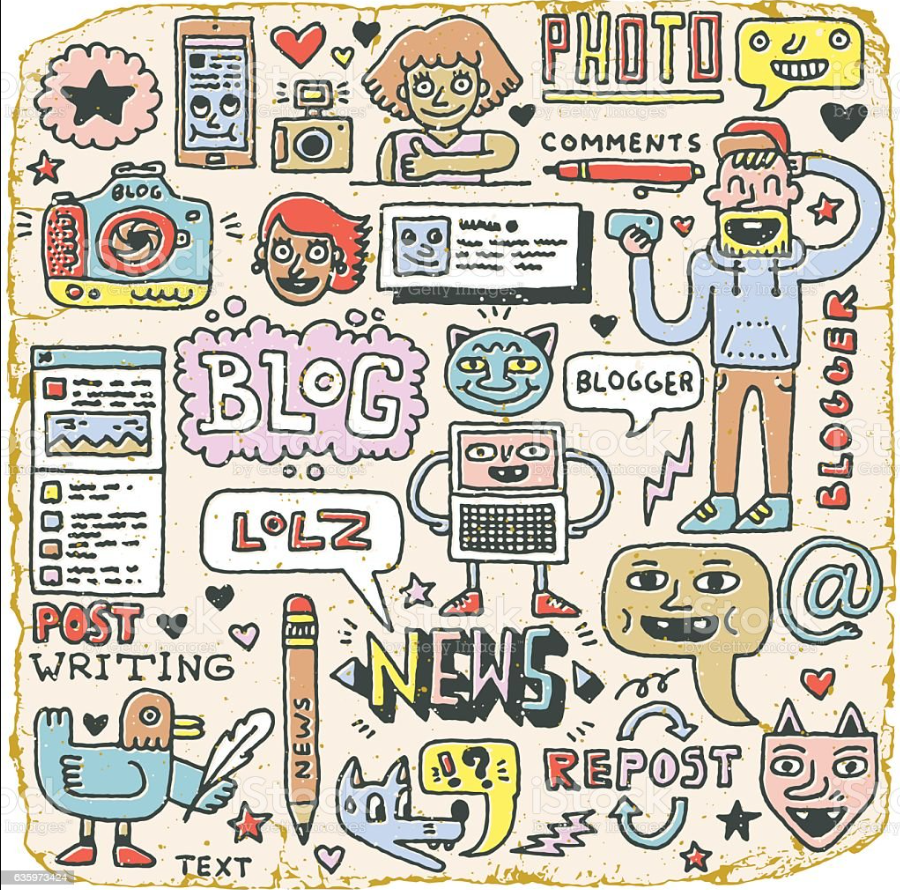 PHOTO
COMMENTS
BLOG
BLOG
BLOGGER
BLOGGER
LOLZ
POST
WRITING
NEWS
NEWS
!?
REPOST
@
TEXT
iStock
by Getty Images™
635973424